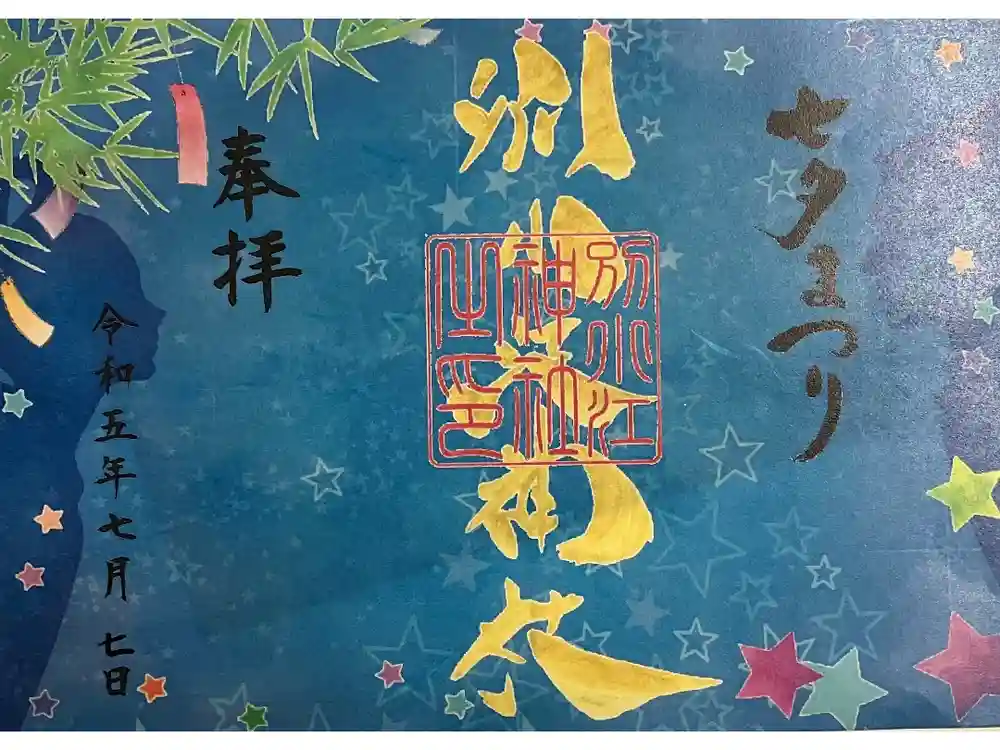 七夕まつり
別小江
神社
之印
奉拝
令和五年七月七日